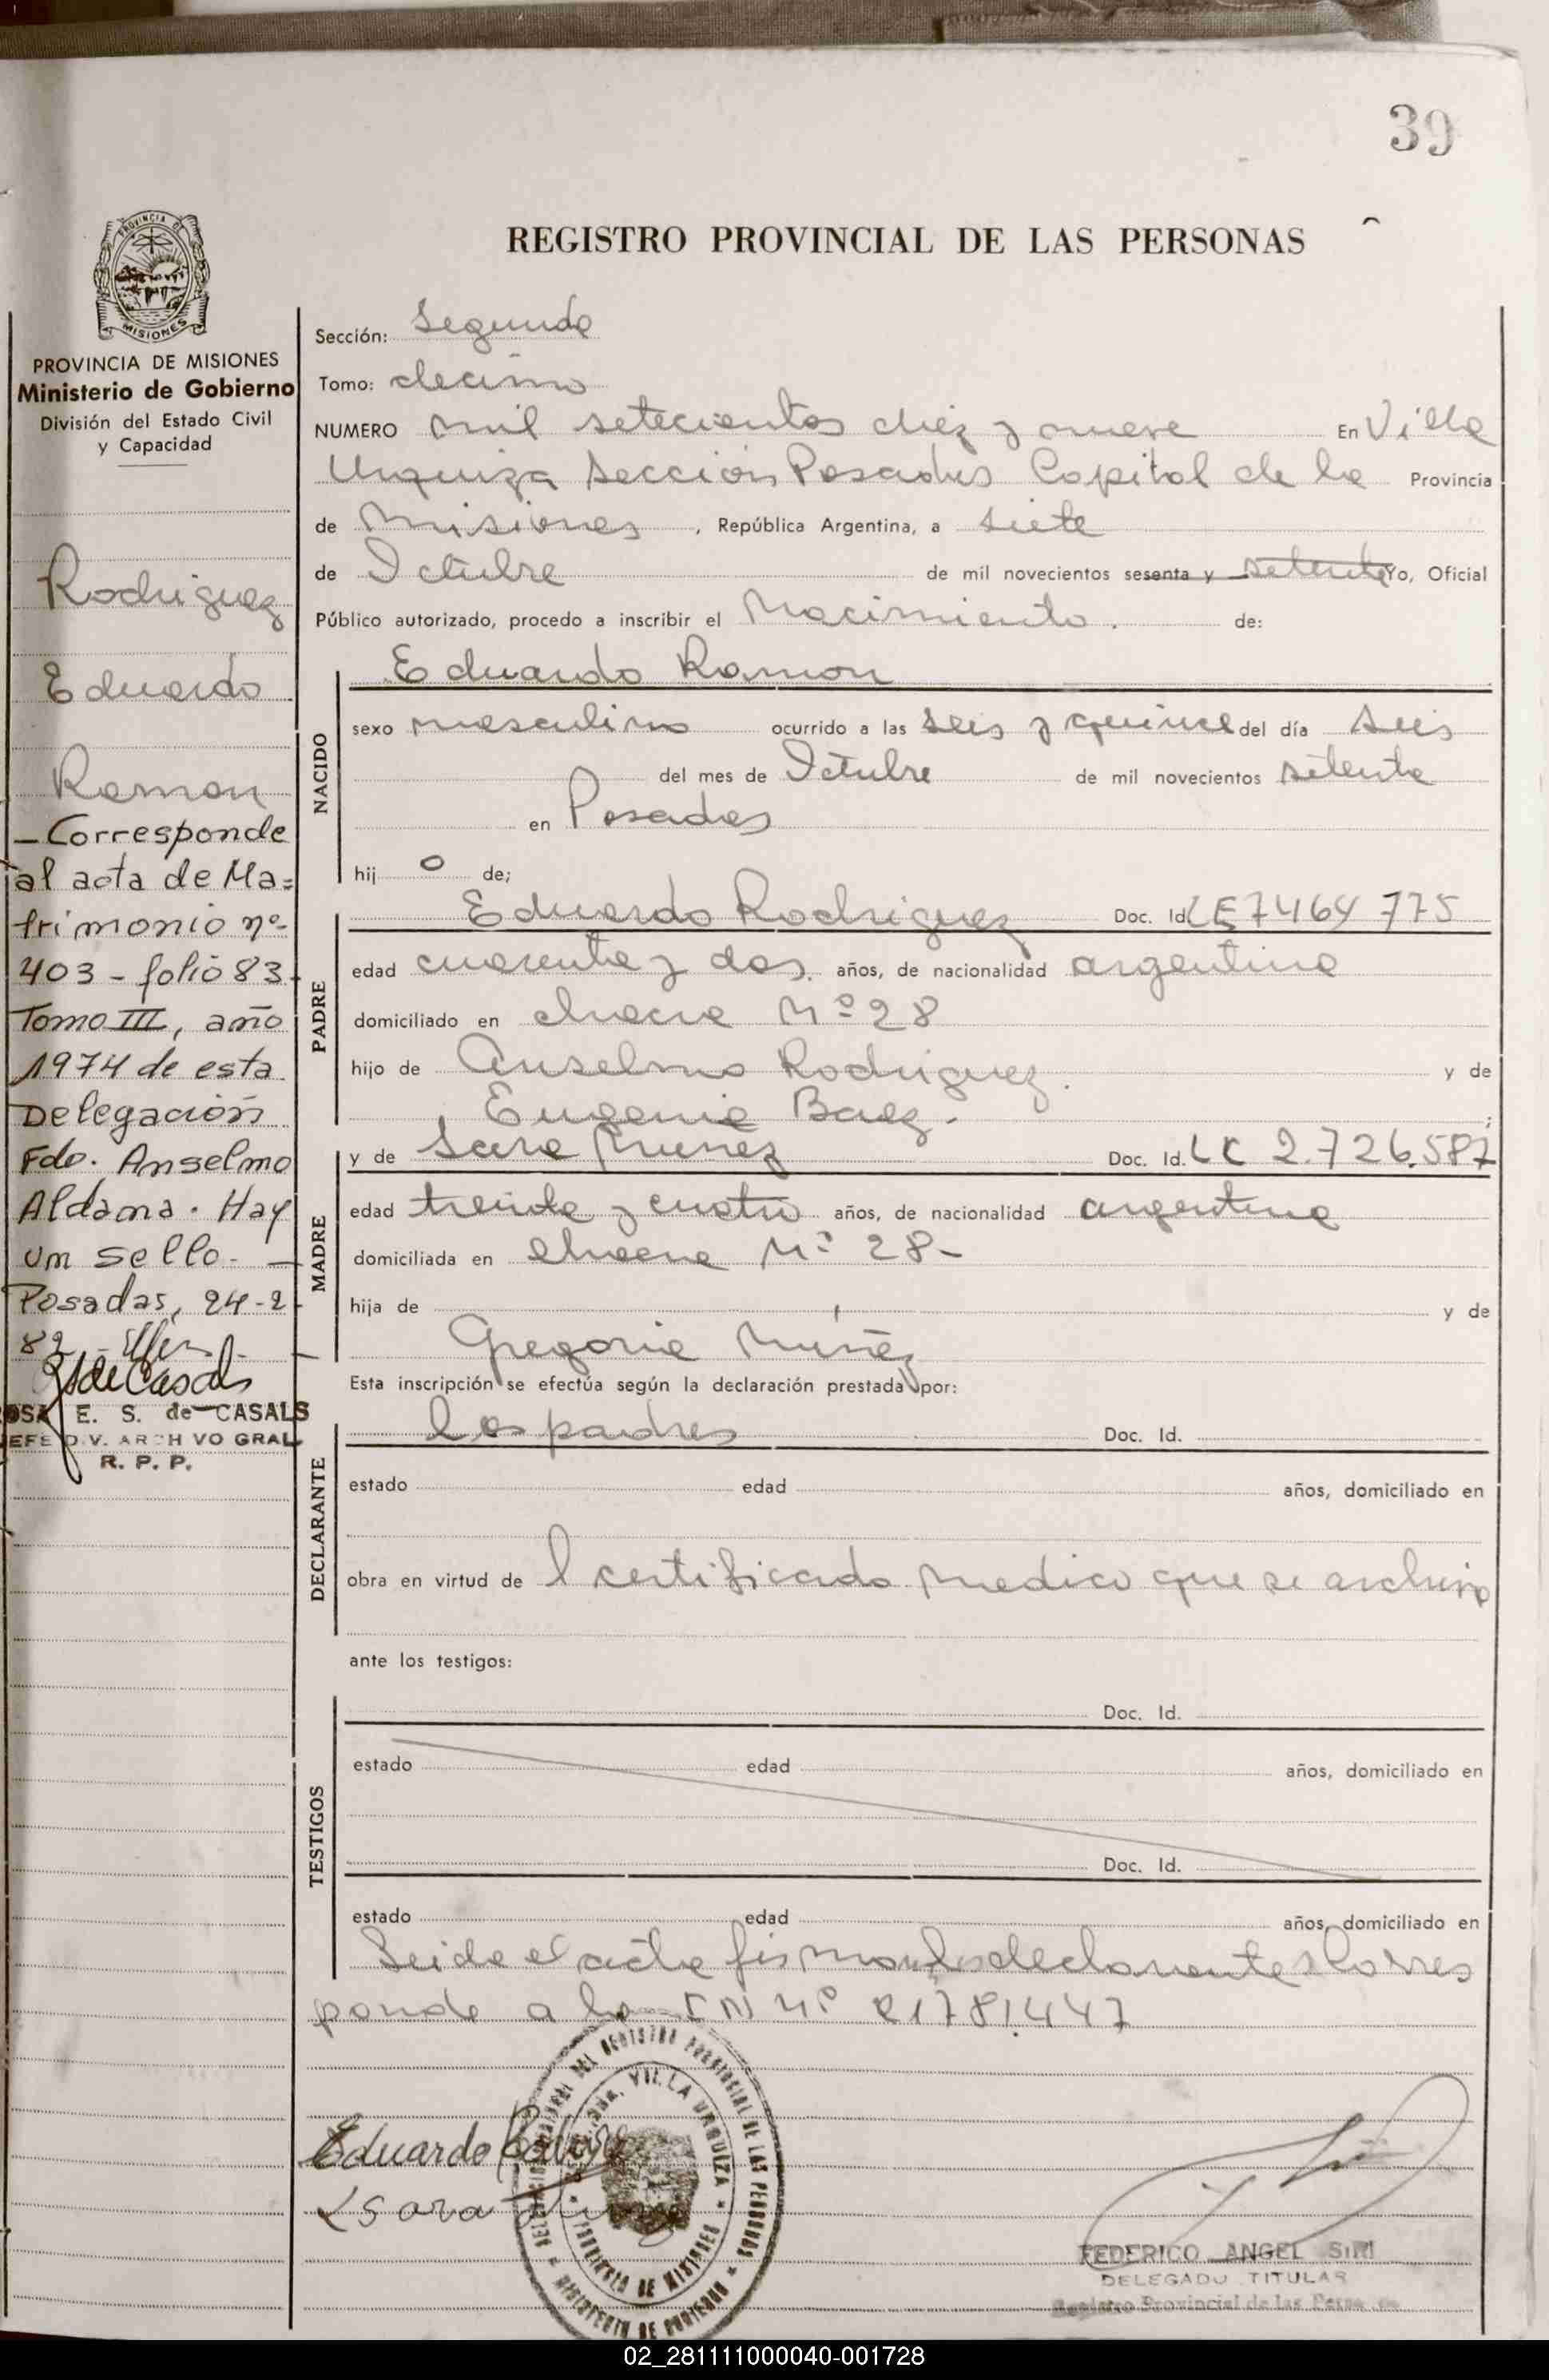 39
REGISTRO PROVINCIAL DE LAS PERSONAS
PROVINCIA DE MISIONES
Ministerio de Gobierno
División del Estado Civil
y Capacidad
Rodriguez
Eduardo
Ramon
- Corresponde
al acta de Ma=
trimonio nº
403 - folio 83-
Tomo III, año
1974 de esta
Delegación
Fdo. Anselmo
Aldama. Hay
un sello. -
Posadas, 24-2-
82
E. S. de CASALS
DIV. ARCHIVO GRAL
R. P. P.
Sección: Segunda
Tomo: decimo
NUMERO mil setecientos diez y nueve En Villa
Urquiza Sección Posadas Capital de la Provincia
de Misiones, República Argentina, a siete
de Octubre de mil novecientos sesenta y setenta Yo, Oficial
Público autorizado, procedo a inscribir el Nacimiento. de:
NACIDO
Eduardo Ramon
sexo masculino ocurrido a las seis y quince del día seis
del mes de Octubre de mil novecientos setenta
en Posadas
hij o de;
PADRE
Eduardo Rodriguez Doc. Id. LE 7464 775
edad cuarenta y dos. años, de nacionalidad argentina
domiciliado en chacra Nº 28
hijo de Anselmo Rodriguez. y de
Eugenia Baez.
MADRE
y de Sara Nuñez Doc. Id. LC 2.726.587
edad treinta y cuatro años, de nacionalidad argentina
domiciliada en chacra Nº 28-
hija de y de
Gregoria Núñez
Esta inscripción se efectúa según la declaración prestada por:
DECLARANTE
los padres Doc. Id.
estado edad años, domiciliado en
obra en virtud de l certificado medico que se archiva
ante los testigos:
TESTIGOS
Doc. Id.
estado edad años, domiciliado en
Doc. Id.
estado edad años, domiciliado en
Leida el acta firman los declarantes Corres
ponde a la Nº 21781.447
Eduardo
Sara
VILLA URQUIZA
PROVINCIA DE MISIONES
MINISTERIO DE GOBIERNO
FEDERICO ANGEL SIRI
DELEGADO TITULAR
Registro Provincial de las Personas
02_281111000040-001728